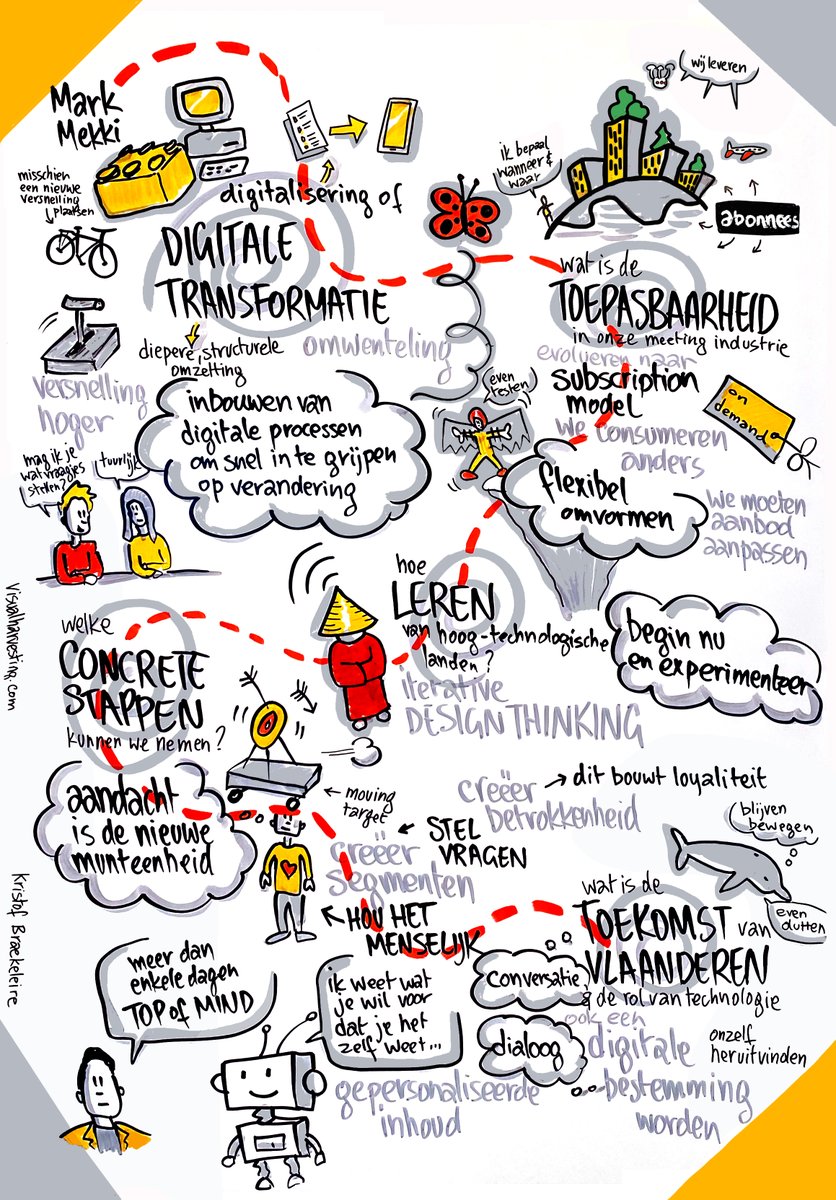 Mark
Mekki
misschien
een nieuwe
versnelling
plaatsen
digitalisering of
DIGITALE
TRANSFORMATIE
diepere, structurele
omzetting
omwenteling
versnelling
hoger
inbouwen van
digitale processen
om snel in te grijpen
op verandering
mag ik je
wat vraagjes
stellen?
tuurlijk
wij leveren
ik bepaal
wanneer &
waar
abonnees
wat is de
TOEPASBAARHEID
in onze meeting industrie
evolueren naar
subscription
model
we consumeren
anders
on
demand
even
testen
flexibel
omvormen
we moeten
aanbod
aanpassen
hoe
LEREN
van hoog-technologische
landen?
iterative
DESIGN THINKING
begin nu
en experimenteer
welke
CONCRETE
STAPPEN
kunnen we nemen?
aandacht
is de nieuwe
munteenheid
moving
target
creëer
betrokkenheid
dit bouwt loyaliteit
STEL
VRAGEN
creëer
segmenten
HOU HET
MENSELIJK
blijven
bewegen
even
dutten
wat is de
TOEKOMST van
VLAANDEREN
& de rol van technologie
conversatie
dialoog
ook een
digitale
bestemming
worden
onzelf
heruitvinden
meer dan
enkele dagen
TOP of MIND
ik weet wat
je wil voor
dat je het
zelf weet...
gepersonaliseerde
inhoud
visualharvesting.com
Kristof Braekeleire